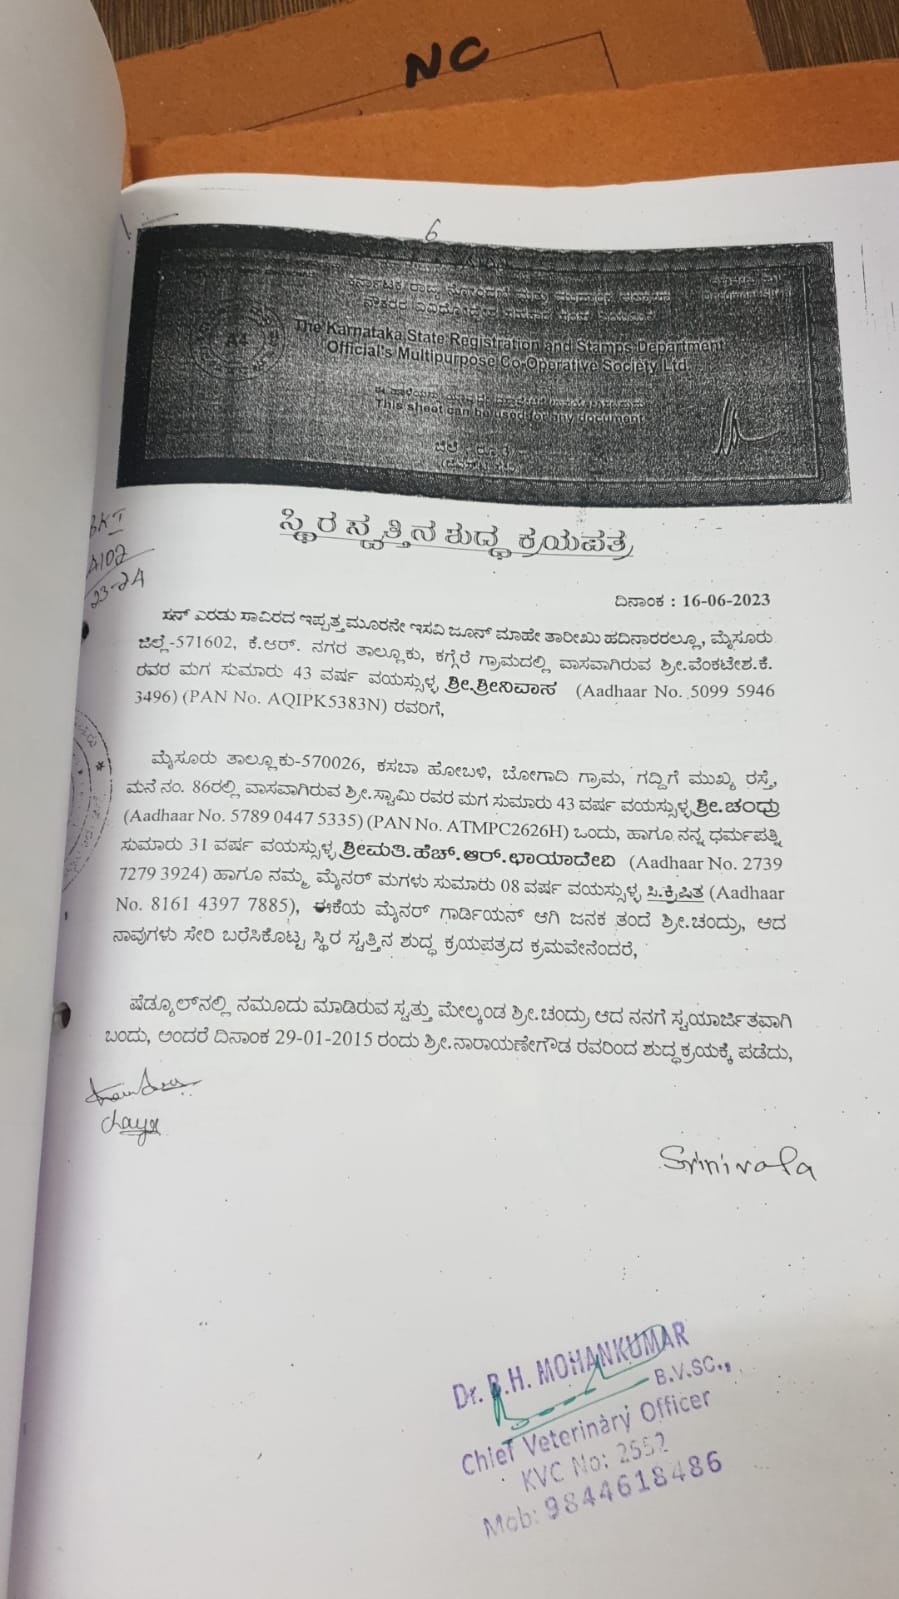 NC
6
The Karnataka State Registration and Stamps Department
Official's Multipurpose Co-Operative Society Ltd.
This sheet can be used for any document
ಸ್ಥಿರ ಸ್ವತ್ತಿನ ಶುದ್ಧ ಕ್ರಯಪತ್ರ
BK I
4102
23-24
ದಿನಾಂಕ : 16-06-2023
ಸನ್ ಎರಡು ಸಾವಿರದ ಇಪ್ಪತ್ತ ಮೂರನೇ ಇಸವಿ ಜೂನ್ ಮಾಹೇ ತಾರೀಖು ಹದಿನಾರರಲ್ಲೂ, ಮೈಸೂರು
ಜಿಲ್ಲೆ-571602, ಕೆ.ಆರ್. ನಗರ ತಾಲ್ಲೂಕು, ಕಗ್ಗೆರೆ ಗ್ರಾಮದಲ್ಲಿ ವಾಸವಾಗಿರುವ ಶ್ರೀ.ವೆಂಕಟೇಶ.ಕೆ.
ರವರ ಮಗ ಸುಮಾರು 43 ವರ್ಷ ವಯಸ್ಸುಳ್ಳ ಶ್ರೀ.ಶ್ರೀನಿವಾಸ (Aadhaar No. 5099 5946
3496) (PAN No. AQIPK5383N) ರವರಿಗೆ,
ಮೈಸೂರು ತಾಲ್ಲೂಕು-570026, ಕಸಬಾ ಹೋಬಳಿ, ಬೋಗಾದಿ ಗ್ರಾಮ, ಗದ್ದಿಗೆ ಮುಖ್ಯ ರಸ್ತೆ,
ಮನೆ ನಂ. 86ರಲ್ಲಿ ವಾಸವಾಗಿರುವ ಶ್ರೀ.ಸ್ವಾಮಿ ರವರ ಮಗ ಸುಮಾರು 43 ವರ್ಷ ವಯಸ್ಸುಳ್ಳ ಶ್ರೀ.ಚಂದ್ರು
(Aadhaar No. 5789 0447 5335) (PAN No. ATMPC2626H) ಒಂದು, ಹಾಗೂ ನನ್ನ ಧರ್ಮಪತ್ನಿ
ಸುಮಾರು 31 ವರ್ಷ ವಯಸ್ಸುಳ್ಳ ಶ್ರೀಮತಿ.ಹೆಚ್.ಆರ್.ಛಾಯಾದೇವಿ (Aadhaar No. 2739
7279 3924) ಹಾಗೂ ನಮ್ಮ ಮೈನರ್ ಮಗಳು ಸುಮಾರು 08 ವರ್ಷ ವಯಸ್ಸುಳ್ಳ ಸಿ.ಕ್ರಿಷಿತ (Aadhaar
No. 8161 4397 7885), ಈಕೆಯ ಮೈನರ್ ಗಾರ್ಡಿಯನ್ ಆಗಿ ಜನಕ ತಂದೆ ಶ್ರೀ.ಚಂದ್ರು, ಆದ
ನಾವುಗಳು ಸೇರಿ ಬರೆಸಿಕೊಟ್ಟ ಸ್ಥಿರ ಸ್ವತ್ತಿನ ಶುದ್ಧ ಕ್ರಯಪತ್ರದ ಕ್ರಮವೇನೆಂದರೆ,
ಷೆಡ್ಯೂಲ್‌ನಲ್ಲಿ ನಮೂದು ಮಾಡಿರುವ ಸ್ವತ್ತು ಮೇಲ್ಕಂಡ ಶ್ರೀ.ಚಂದ್ರು ಆದ ನನಗೆ ಸ್ವಯಾರ್ಜಿತವಾಗಿ
ಬಂದು, ಅಂದರೆ ದಿನಾಂಕ 29-01-2015 ರಂದು ಶ್ರೀ.ನಾರಾಯಣೇಗೌಡ ರವರಿಂದ ಶುದ್ಧಕ್ರಯಕ್ಕೆ ಪಡೆದು,
chaya
Srinivasa
Dr. B.H. MOHANKUMAR
B.V.SC.,
Chief Veterinary Officer
KVC No: 2552
Mob: 9844618486